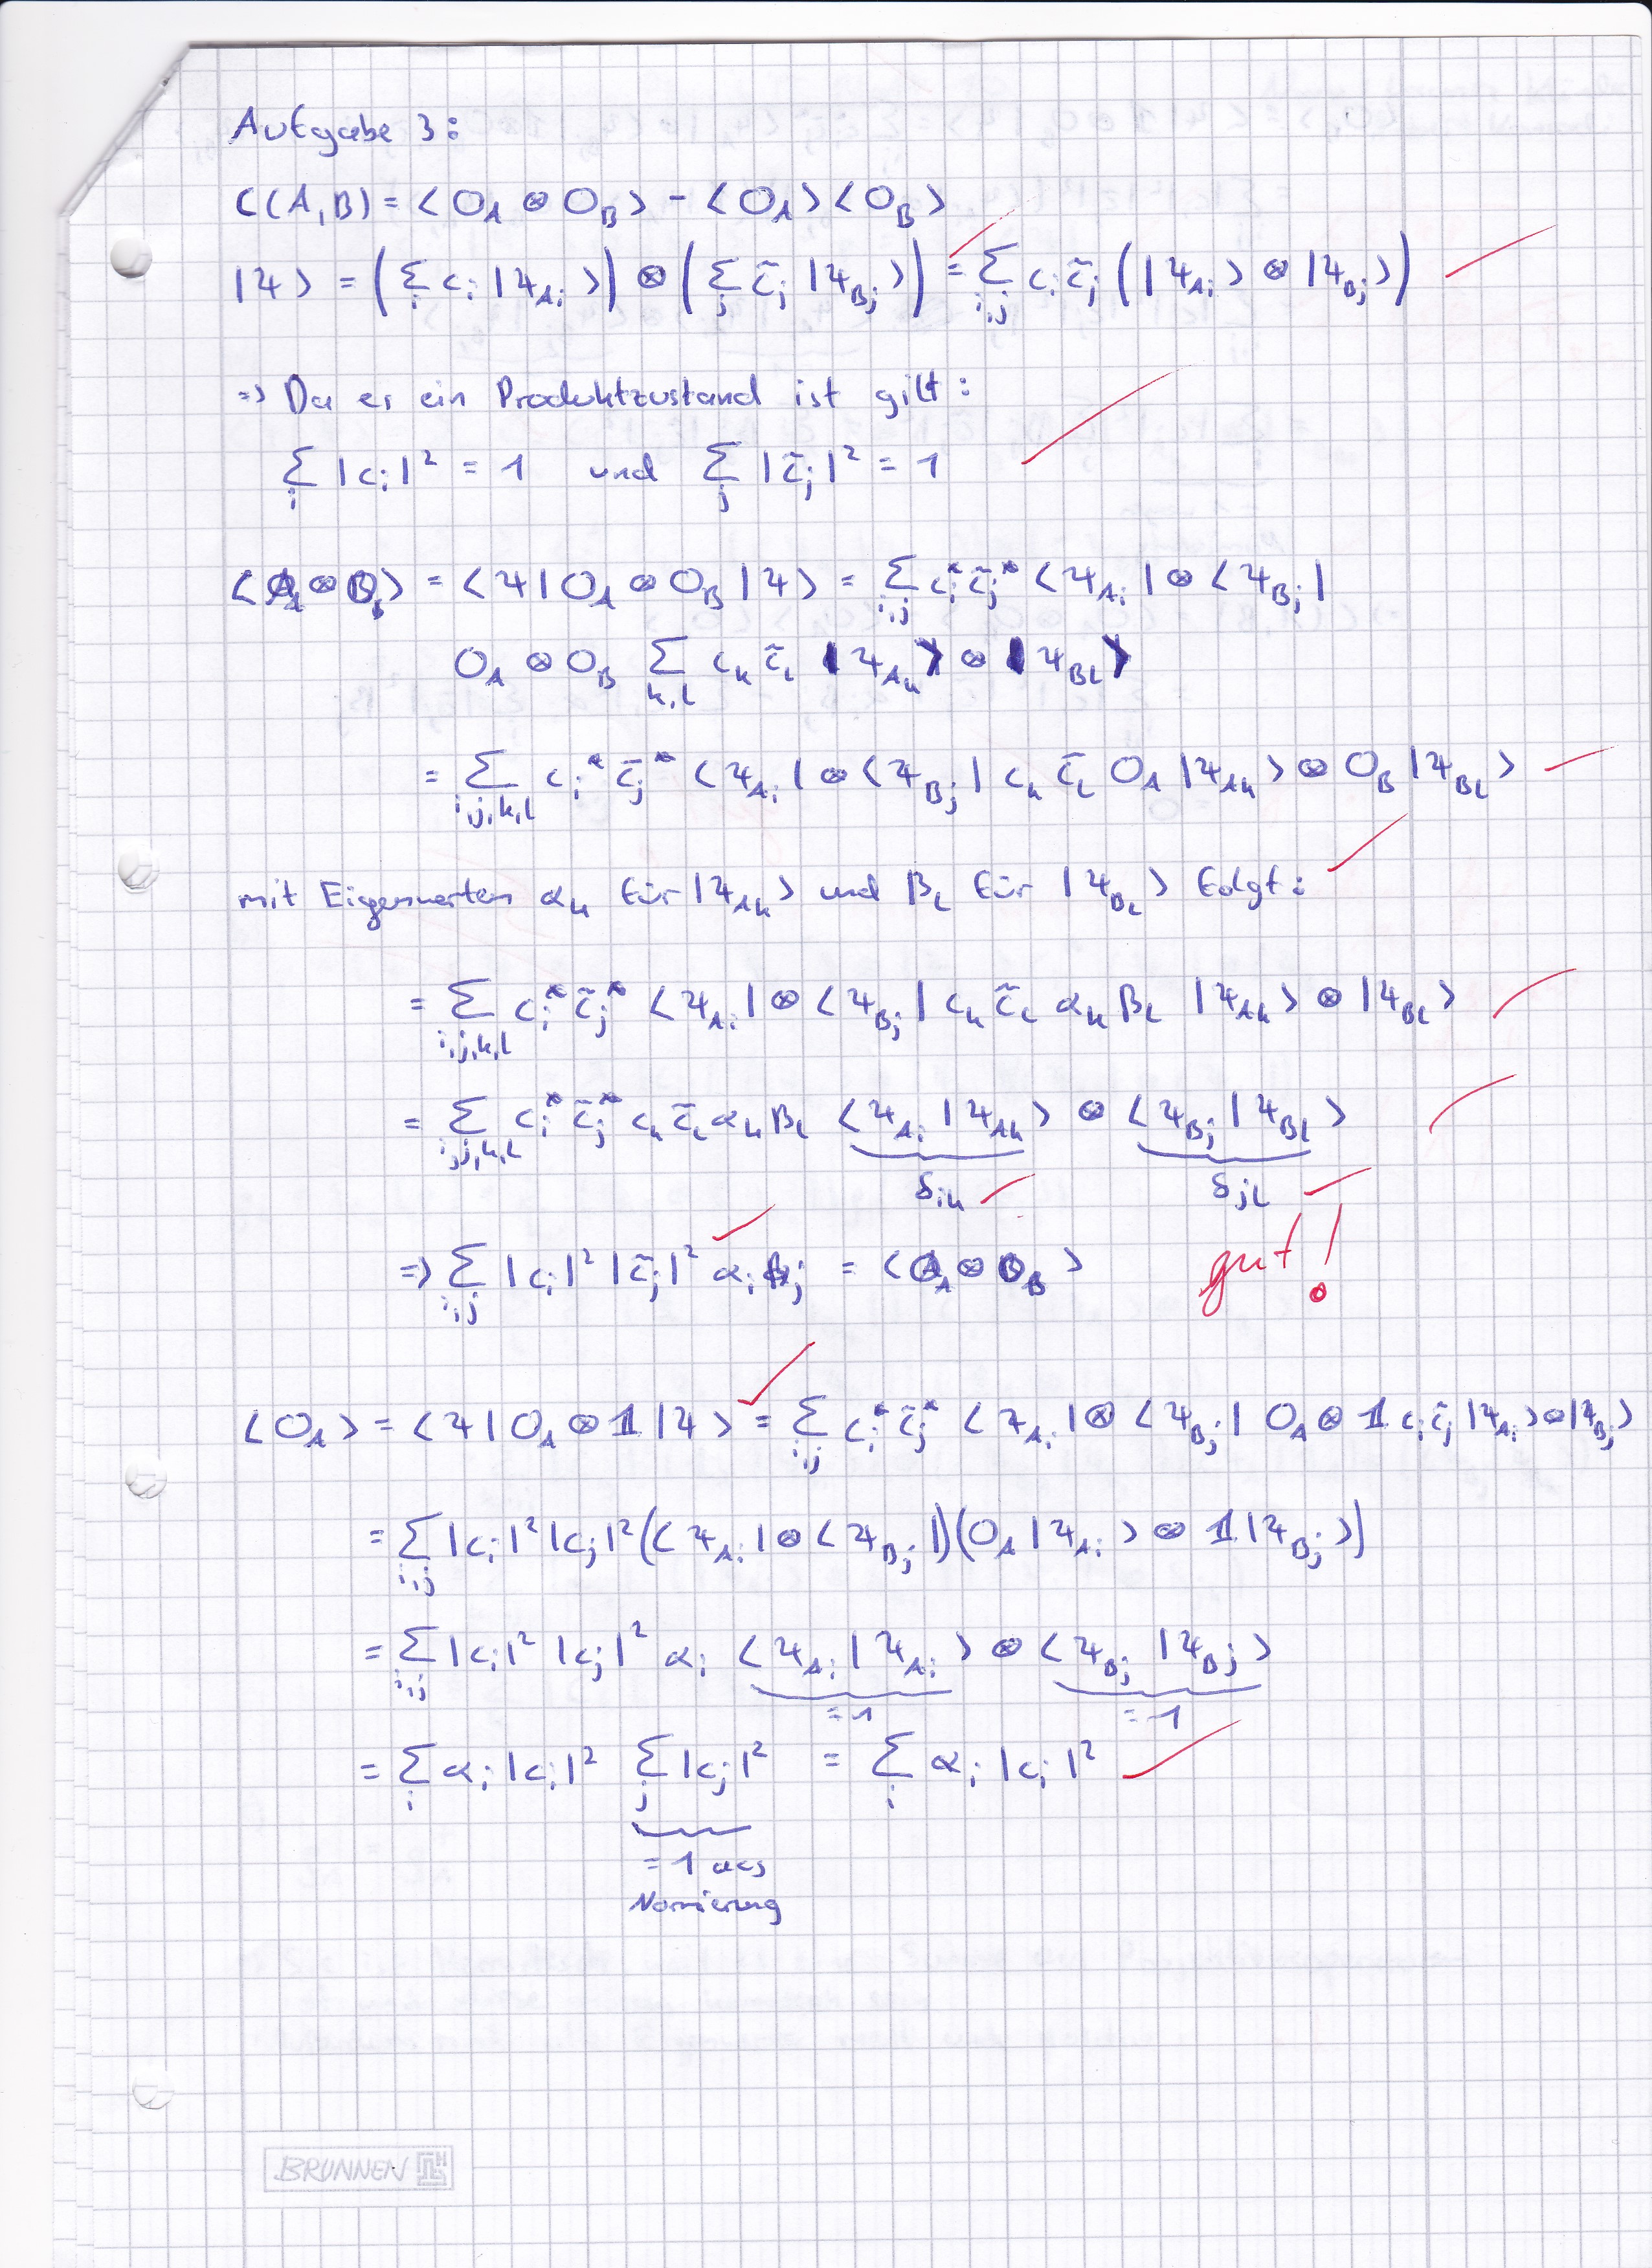 Aufgabe 3:
C(A,B) = ⟨O_A ⊗ O_B⟩ - ⟨O_A⟩⟨O_B⟩
|Ψ⟩ = (∑_i c_i |Ψ_{A_i}⟩) ⊗ (∑_j c̃_j |Ψ_{B_j}⟩) = ∑_{i,j} c_i c̃_j (|Ψ_{A_i}⟩ ⊗ |Ψ_{B_j}⟩)
=> Da es ein Produktzustand ist gilt:
∑_i |c_i|² = 1 und ∑_j |c̃_j|² = 1
⟨O_A ⊗ O_B⟩ = ⟨Ψ| O_A ⊗ O_B |Ψ⟩ = ∑_{i,j} c_i^* c̃_j^* ⟨Ψ_{A_i}| ⊗ ⟨Ψ_{B_j}|
O_A ⊗ O_B ∑_{k,l} c_k c̃_l |Ψ_{A_k}⟩ ⊗ |Ψ_{B_l}⟩
= ∑_{i,j,k,l} c_i^* c̃_j^* ⟨Ψ_{A_i}| ⊗ ⟨Ψ_{B_j}| c_k c̃_l O_A |Ψ_{A_k}⟩ ⊗ O_B |Ψ_{B_l}⟩
mit Eigenwerten α_k für |Ψ_{A_k}⟩ und β_l für |Ψ_{B_l}⟩ folgt:
= ∑_{i,j,k,l} c_i^* c̃_j^* ⟨Ψ_{A_i}| ⊗ ⟨Ψ_{B_j}| c_k c̃_l α_k β_l |Ψ_{A_k}⟩ ⊗ |Ψ_{B_l}⟩
= ∑_{i,j,k,l} c_i^* c̃_j^* c_k c̃_l α_k β_l ⟨Ψ_{A_i}|Ψ_{A_k}⟩ ⊗ ⟨Ψ_{B_j}|Ψ_{B_l}⟩
δ_{ik} δ_{jl}
=> ∑_{i,j} |c_i|² |c̃_j|² α_i β_j = ⟨O_A ⊗ O_B⟩ gut!
⟨O_A⟩ = ⟨Ψ| O_A ⊗ 𝟙 |Ψ⟩ = ∑_{i,j} c_i^* c̃_j^* ⟨Ψ_{A_i}| ⊗ ⟨Ψ_{B_j}| O_A ⊗ 𝟙 c_i c̃_j |Ψ_{A_i}⟩ ⊗ |Ψ_{B_j}⟩
= ∑_{i,j} |c_i|² |c_j|² (⟨Ψ_{A_i}| ⊗ ⟨Ψ_{B_j}|)(O_A |Ψ_{A_i}⟩ ⊗ 𝟙 |Ψ_{B_j}⟩)
= ∑_{i,j} |c_i|² |c_j|² α_i ⟨Ψ_{A_i}|Ψ_{A_i}⟩ ⊗ ⟨Ψ_{B_j}|Ψ_{B_j}⟩
=1 =1
= ∑_i α_i |c_i|² ∑_j |c_j|² = ∑_i α_i |c_i|²
=1 aus
Normierung
BRUNNEN